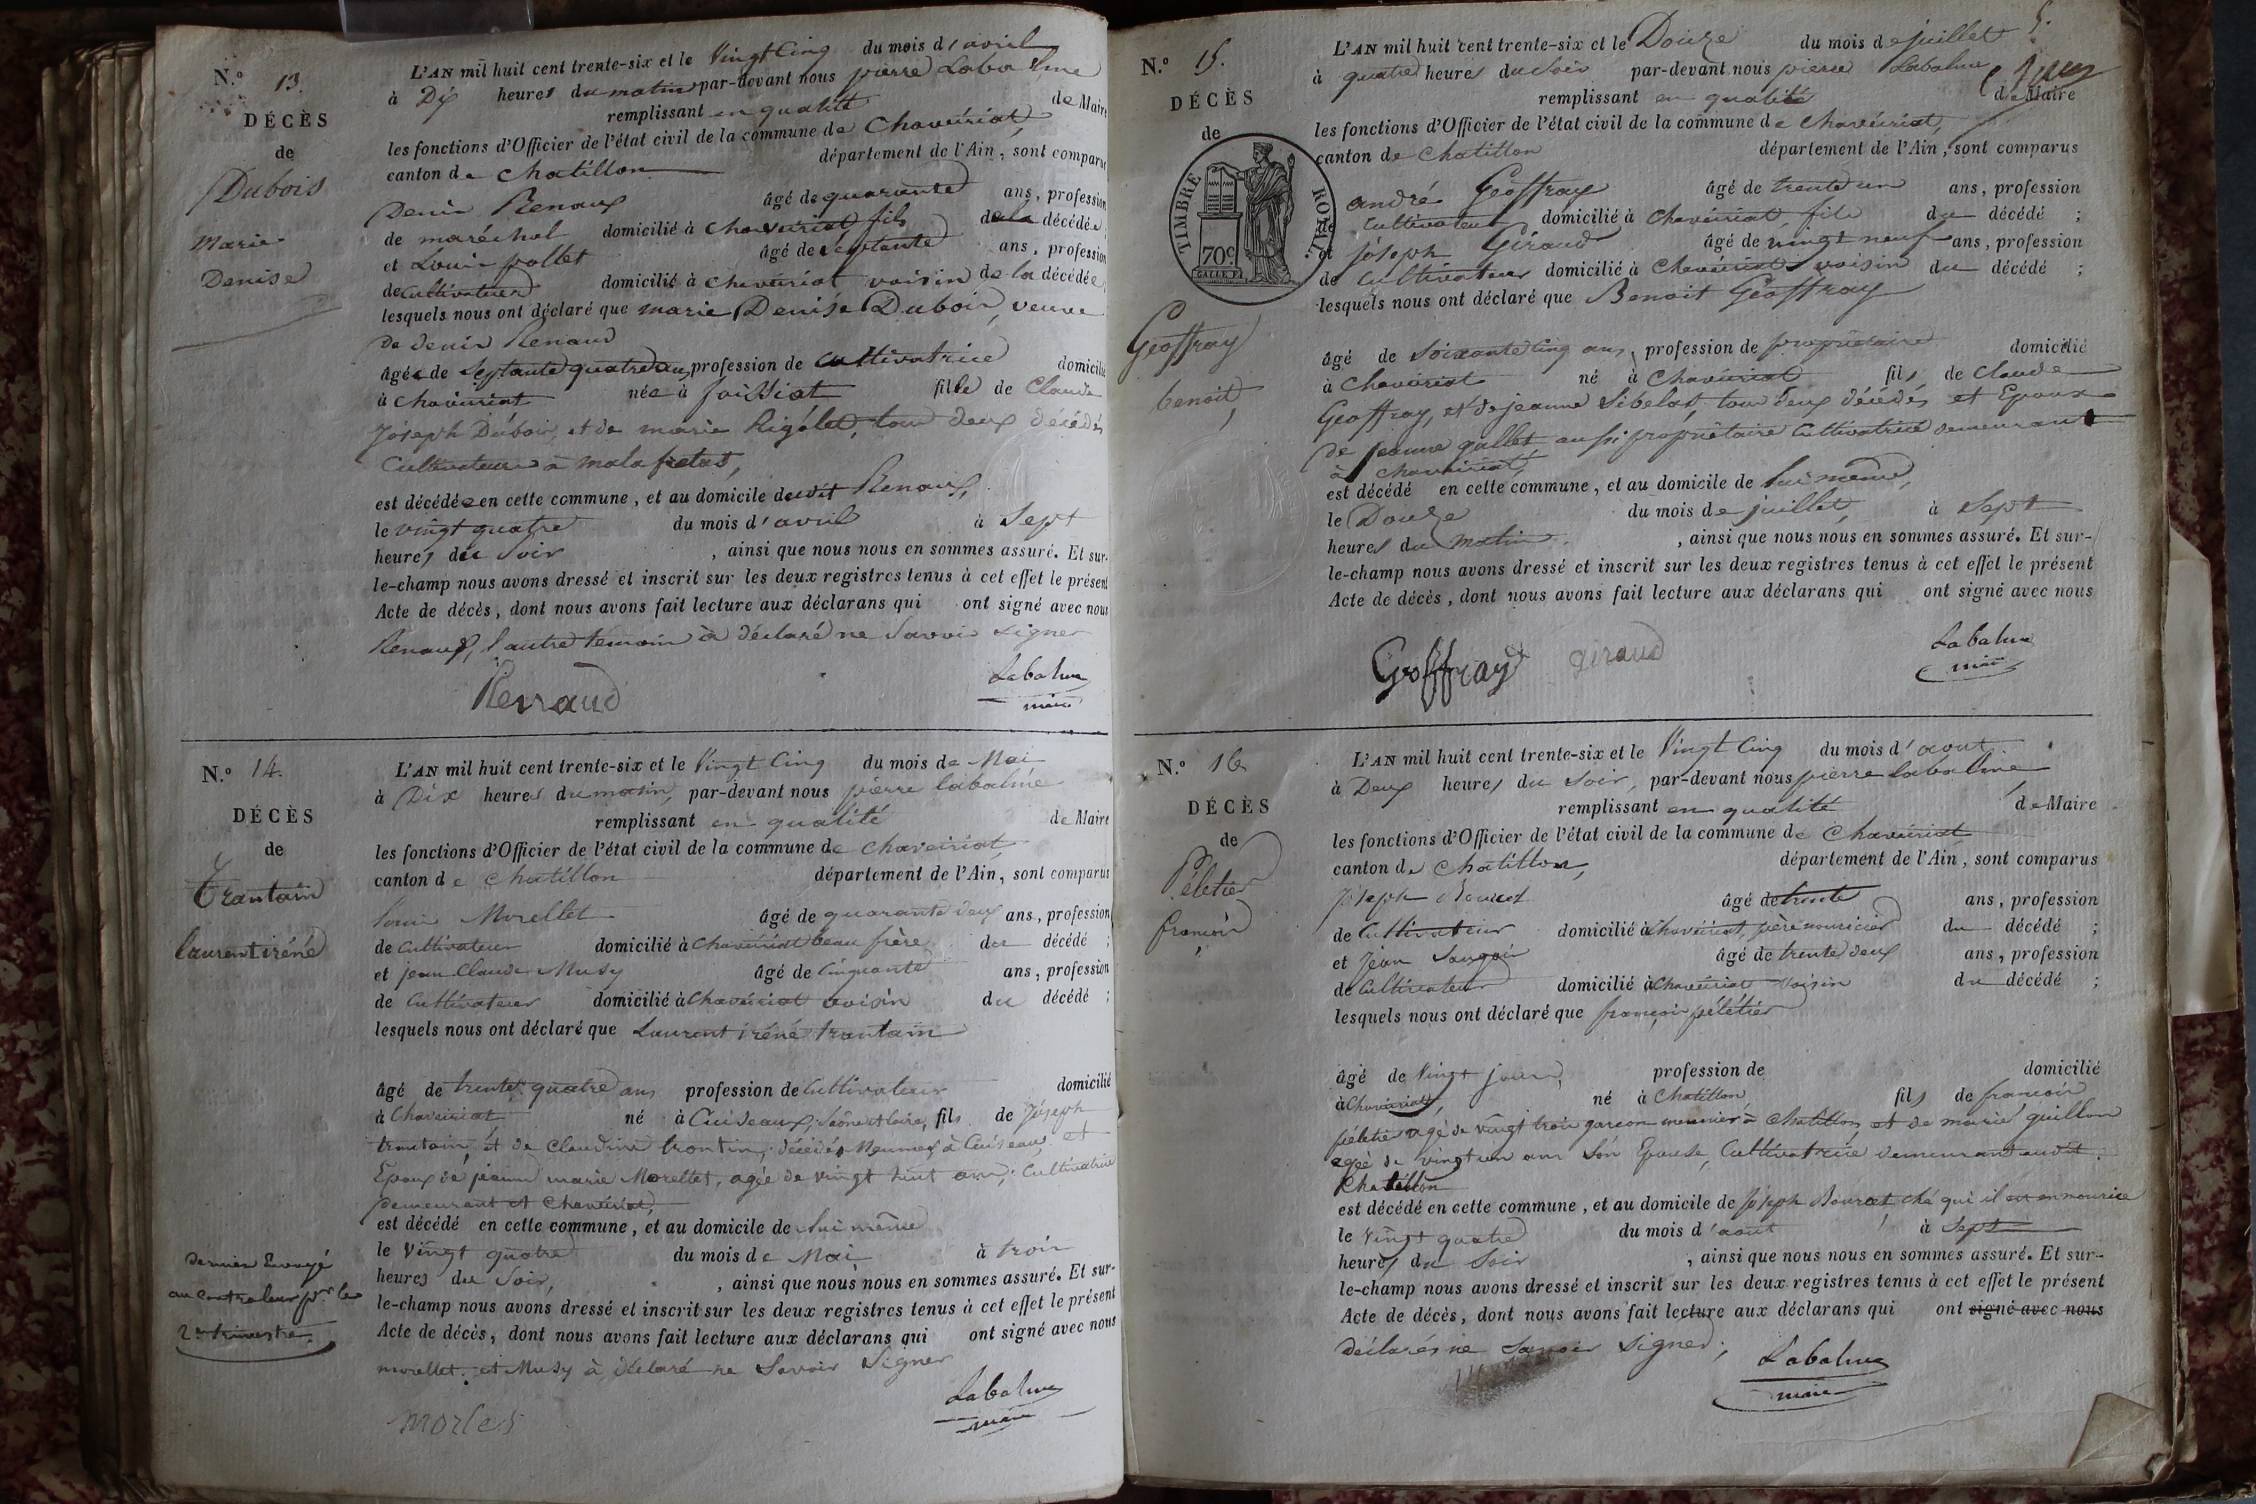 N.º 13.
DÉCÈS
de
Dubois
Marie
Denise
L'AN mil huit cent trente-six et le Vingt Cinq du mois d'avril
à Dix heures du matin par-devant nous pierre Labalme
remplissant en qualité de Maire
les fonctions d'Officier de l'état civil de la commune de Chaveiriat,
canton de Chatillon département de l'Ain, sont comparus
Denis Renaux âgé de quarante ans, profession
de maréchal domicilié à Chaveiriat fils de la décédée;
et Louis pollet âgé de septante ans, profession
de Cultivateur domicilié à Chaveiriat voisin de la décédée;
lesquels nous ont déclaré que marie Denise Dubois, veuve
De denis Renaud
âgée de Septante quatre ans, profession de Cultivatrice domicilié
à Chaveiriat née à foissiat fille de Claude
Joseph Dubois, et de marie Rigolet, tous deux décédés
Cultivateurs à malafretas,
est décédée en cette commune, et au domicile dudit Renaux,
le vingt quatre du mois d'avril à Sept
heures du Soir, ainsi que nous nous en sommes assuré. Et sur-
le-champ nous avons dressé et inscrit sur les deux registres tenus à cet effet le présent
Acte de décès, dont nous avons fait lecture aux déclarans qui ont signé avec nous
Renaux, l'autre témoin à déclaré ne Savoir Signer
Renaud
Labalme
maire
N.º 14.
DÉCÈS
de
Trantain
laurent iréné
Dernier Envoyé
au Controleur pr le
2e trimestre.
L'AN mil huit cent trente-six et le Vingt Cinq du mois de Mai
à Dix heures du matin, par-devant nous pierre labalme
remplissant en qualité de Maire
les fonctions d'Officier de l'état civil de la commune de Chaveiriat,
canton de Chatillon département de l'Ain, sont comparus
louis Morellet âgé de quarante deux ans, profession
de Cultivateur domicilié à Chaveiriat beau frère du décédé;
et jean Claude Musy âgé de Cinquante ans, profession
de Cultivateur domicilié à Chaveiriat voisin du décédé;
lesquels nous ont déclaré que Laurent iréné trantain
âgé de trente quatre ans profession de Cultivateur domicilié
à Chaveiriat, né à Cuiseaux, Saône et Loire, fils de Joseph
trantain, et de Claudine trontin, décédés à Cuiseaux, et
Epoux de jeanne marie Morellet, agée de vingt huit ans, Cultivatrice
Demeurant à Chaveiriat,
est décédé en cette commune, et au domicile de lui même
le Vingt quatre du mois de Mai à trois
heures du Soir, ainsi que nous nous en sommes assuré. Et sur-
le-champ nous avons dressé et inscrit sur les deux registres tenus à cet effet le présent
Acte de décès, dont nous avons fait lecture aux déclarans qui ont signé avec nous
morellet. et Musy à déclaré ne Savoir Signer
morles
Labalme
maire
N.º 15.
DÉCÈS
de
TIMBRE ROYAL.
70c
Geoffray
benoit,
5.
L'AN mil huit cent trente-six et le Douze du mois de juillet
à quatre heures du Soir par-devant nous pierre Labalme
remplissant en qualité de Maire
les fonctions d'Officier de l'état civil de la commune de Chaveiriat,
canton de Chatillon département de l'Ain, sont comparus
andré Geoffray âgé de trente un ans, profession
Cultivateur domicilié à Chaveiriat fils du décédé;
et joseph Giraud âgé de vingt neuf ans, profession
de Cultivateur domicilié à Chaveiriat voisin du décédé;
lesquels nous ont déclaré que Benoit Geoffray
âgé de Soixante Cinq ans, profession de propriétaire domicilié
à Chaveiriat né à Chaveiriat fils de Claude
Geoffray, et de jeanne Sibelas, tous deux décédés et Epoux
de jeanne gallet aussi propriétaire Cultivatrice demeurant
à Chaveiriat,
est décédé en cette commune, et au domicile de lui même,
le Douze du mois de juillet, à Sept
heures du matin, ainsi que nous nous en sommes assuré. Et sur-
le-champ nous avons dressé et inscrit sur les deux registres tenus à cet effet le présent
Acte de décès, dont nous avons fait lecture aux déclarans qui ont signé avec nous
Geoffray giraud
Labalme
maire
N.º 16
DÉCÈS
de
Péletier
françois
L'AN mil huit cent trente-six et le Vingt Cinq du mois d'aout
à Deux heures du Soir, par-devant nous pierre labalme
remplissant en qualité de Maire
les fonctions d'Officier de l'état civil de la commune de Chaveiriat
canton de Chatillon, département de l'Ain, sont comparus
Joseph Bourcet âgé de trente ans, profession
de Cultivateur domicilié à Chaveiriat, père nouricier du décédé;
et Jean âgé de trente deux ans, profession
de Cultivateur domicilié à Chaveiriat Voisin du décédé;
lesquels nous ont déclaré que françois péletier
âgé de Vingt jours, profession de domicilié
à Chaveiriat, né à Chatillon, fils de francois
péletier agé de vingt trois garcon meunier à Chatillon et de marie guillon
agée de vingt un ans Son Epouse, Cultivatrice demeurant audit
Chatillon
est décédé en cette commune, et au domicile de Joseph Bourcet ché qui il est en nourice
le Vingt quatre du mois d'aout à Sept
heures du Soir, ainsi que nous nous en sommes assuré. Et sur-
le-champ nous avons dressé et inscrit sur les deux registres tenus à cet effet le présent
Acte de décès, dont nous avons fait lecture aux déclarans qui ont signé avec nous
déclarés ne Savoir Signer;
Labalme
maire